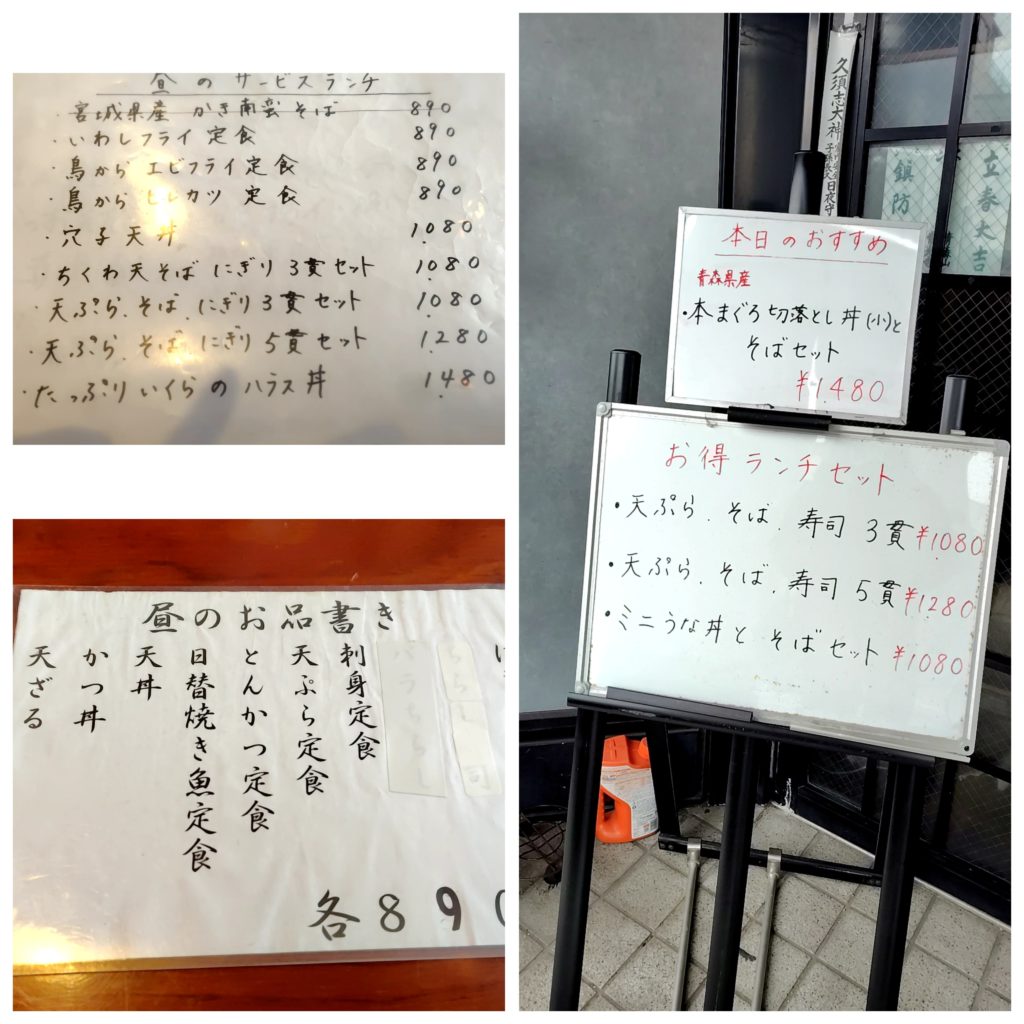 昼のサービスランチ
・宮城県産 かき南蛮そば 890
・いわしフライ定食 890
・鳥から エビフライ定食 890
・鳥から ヒレカツ定食 890
・穴子天丼 1080
・ちくわ天そば にぎり3貫セット 1080
・天ぷら.そば.にぎり3貫セット 1080
・天ぷら.そば.にぎり5貫セット 1280
・たっぷりいくらのハラス丼 1480
昼のお品書き
ばらちらし
刺身定食
天ぷら定食
とんかつ定食
日替焼き魚定食
天丼
かつ丼
天ざる
各890
久須志大神
日夜守
鎮防
立春大吉
本日のおすすめ
青森県産
・本まぐろ切落とし丼(小)と
そばセット
¥1480
お得ランチセット
・天ぷら.そば.寿司 3貫 ¥1080
・天ぷら.そば.寿司 5貫 ¥1280
・ミニうな丼と そばセット ¥1080